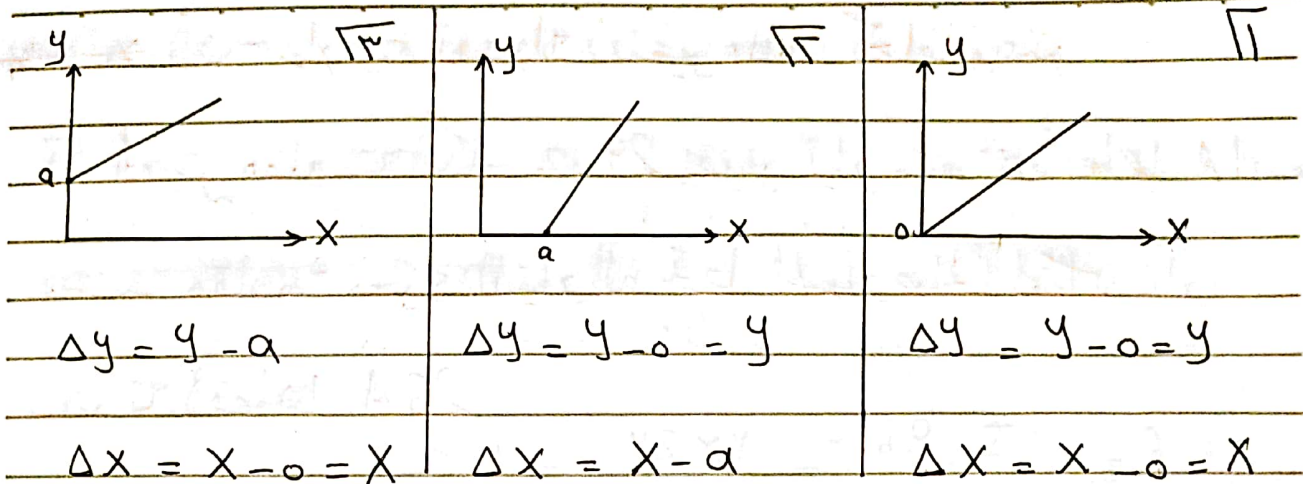 ١
y
0
X
Δy = y - 0 = y
Δx = x - 0 = x
٢
y
a
X
Δy = y - 0 = y
Δx = x - a
٣
y
a
X
Δy = y - a
Δx = x - 0 = x